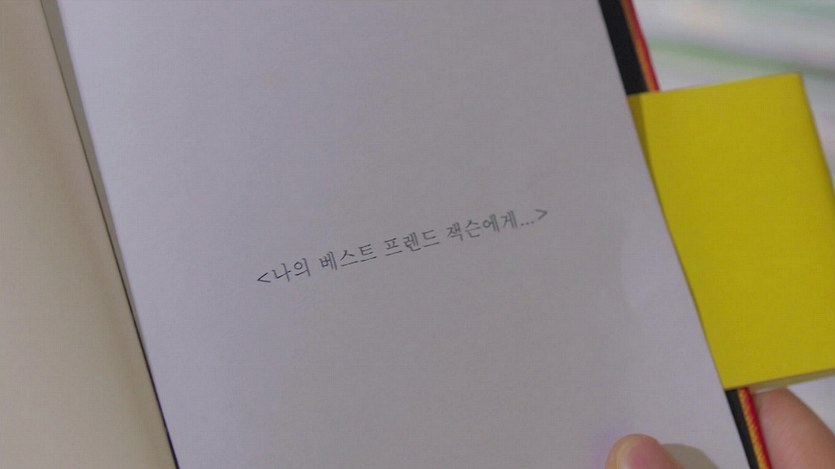 <나의 베스트 프렌드 잭슨에게...>